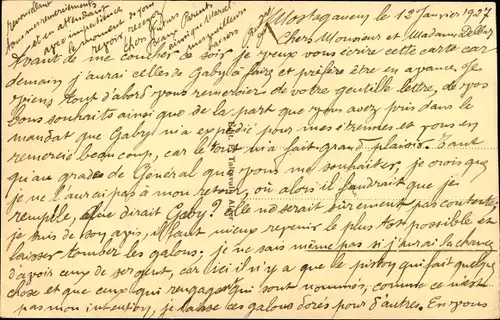 Mostaganem, le 12 Janvier 1937
Chers Monsieur et Madame
Avant de me coucher ce soir, je veux vous écrire cette carte car
demain j'aurai celles de Gaby à faire et préfère être en avance. Je
viens tout d'abord vous remercier de votre gentille lettre, de vos
bons souhaits ainsi que de la part que vous avez pris dans le
mandat que Gaby m'a expédié pour mes étrennes et vous en
remercie beaucoup, car le tout m'a fait grand plaisir. Tant
qu'au grade de Général que vous me souhaitez, je crois que
je ne l'aurai pas à mon retour, où alors il faudrait que je
rempile, et que dirait Gaby? Elle ne serait sûrement pas contente
je suis de son avis, il faut mieux revenir le plus tôt possible et
laisser tomber les galons; je ne sais même pas si j'aurai la chance
d'avoir ceux de sergent, car ici il n'y a que le piston qui fait quelque
chose et que ceux qui rengagent qui sont nommés, comme ce n'est
pas mon intention, je laisse ces galons dorés pour d'autres. En vous
renouvelant
tous mes remerciements
et en attendant
avec impatience
le moment de vous
revoir, recevez
Chers
baisers